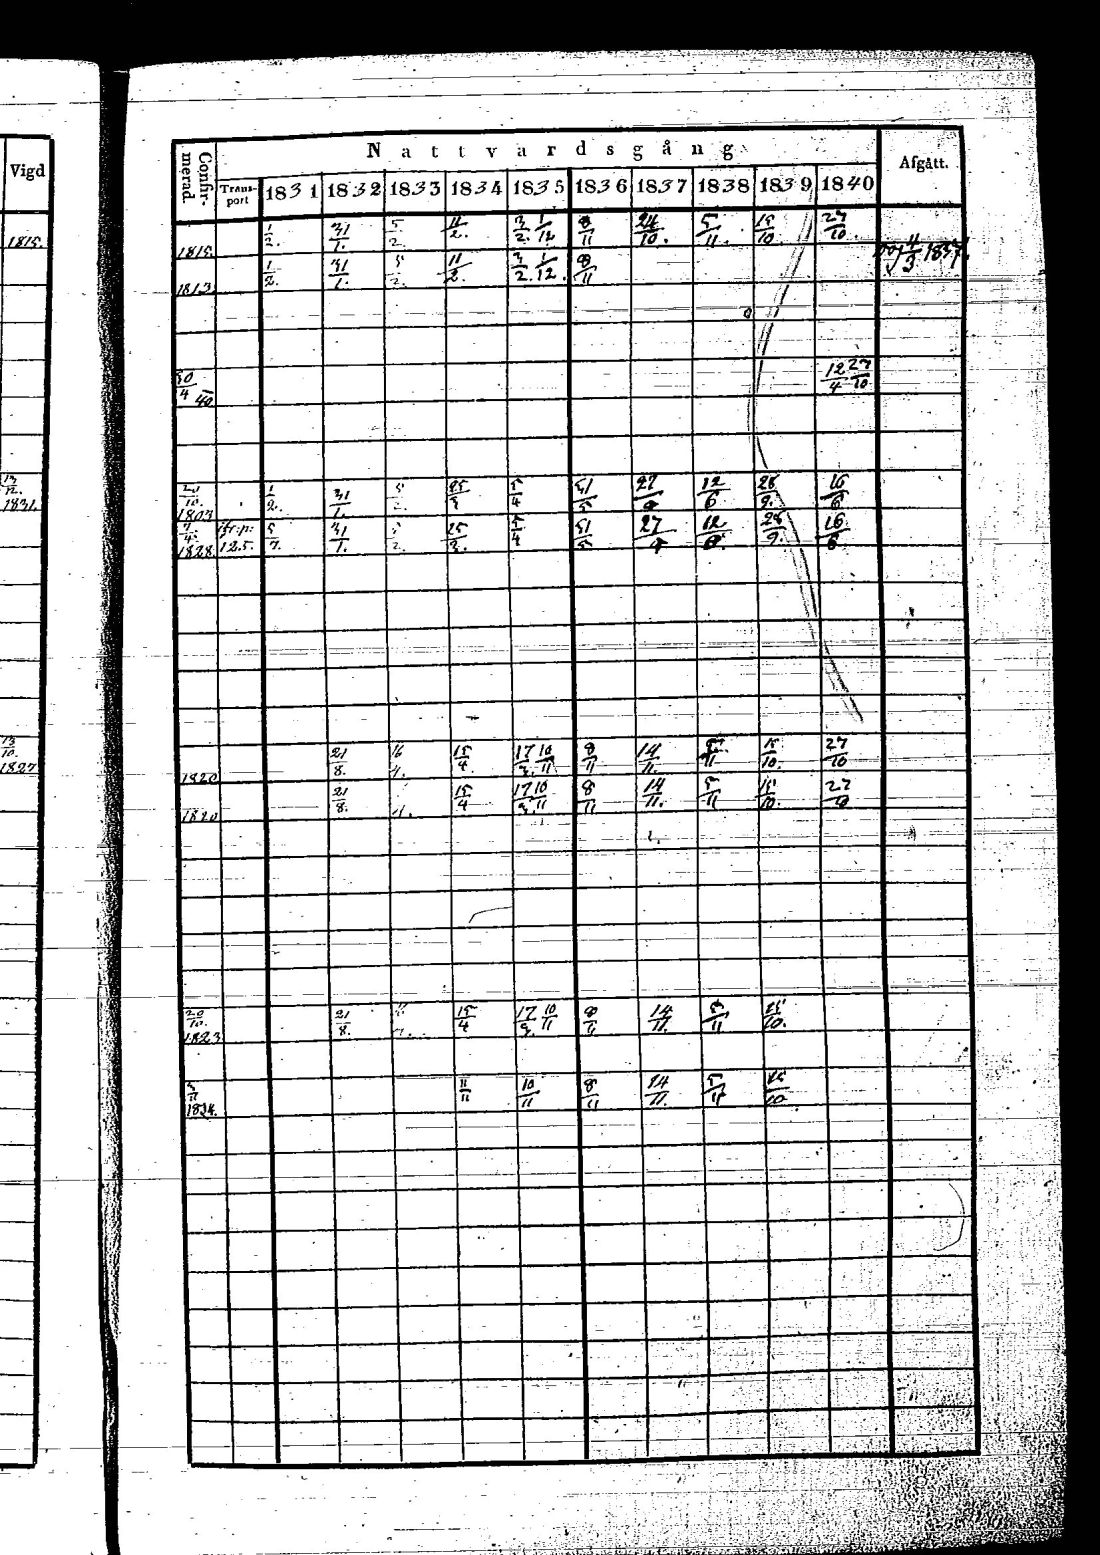 Vigd
1815.
13/12.
1831.
13/10.
1827
Nattvardsgång
Confir-merad. Trans-port 1831 1832 1833 1834 1835 1836 1837 1838 1839 1840 Afgått.
1815. 1/2. 31/1. 5/2. 11/2. 3/2. 1/12 8/11 24/10. 5/11. 15/10. 27/10.
1813. 1/2. 31/1. 5/2. 11/2. 3/2. 1/12. 8/11 4/3 1837.
30/4 40. 12/4 27/10
1803 1/2. 31/1. 5/2. 25/3 5/4 31/5 27/ 12/6 28/9. 16/6
7/4. 1828. fr. p. 125. 5/7. 31/1. 5/2. 25/3. 5/4 31/5 27/ 12/6. 28/9. 16/6
1820 21/8. 16/4. 15/4 17/9. 10/11 8/11 14/11. 5/11 15/10. 27/10
1820 21/8. 4. 15/4 17/9 10/11 8/11 14/11. 5/11 15/10. 27/10
20/10. 1823 21/8. 15/4 17/9. 10/11 8/11 14/11. 5/11 15/10.
1834. 11/11 10/11 8/11 14/11. 5/11 15/10.